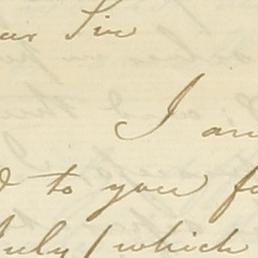 ear Sir
I am
d to you fo
July (which